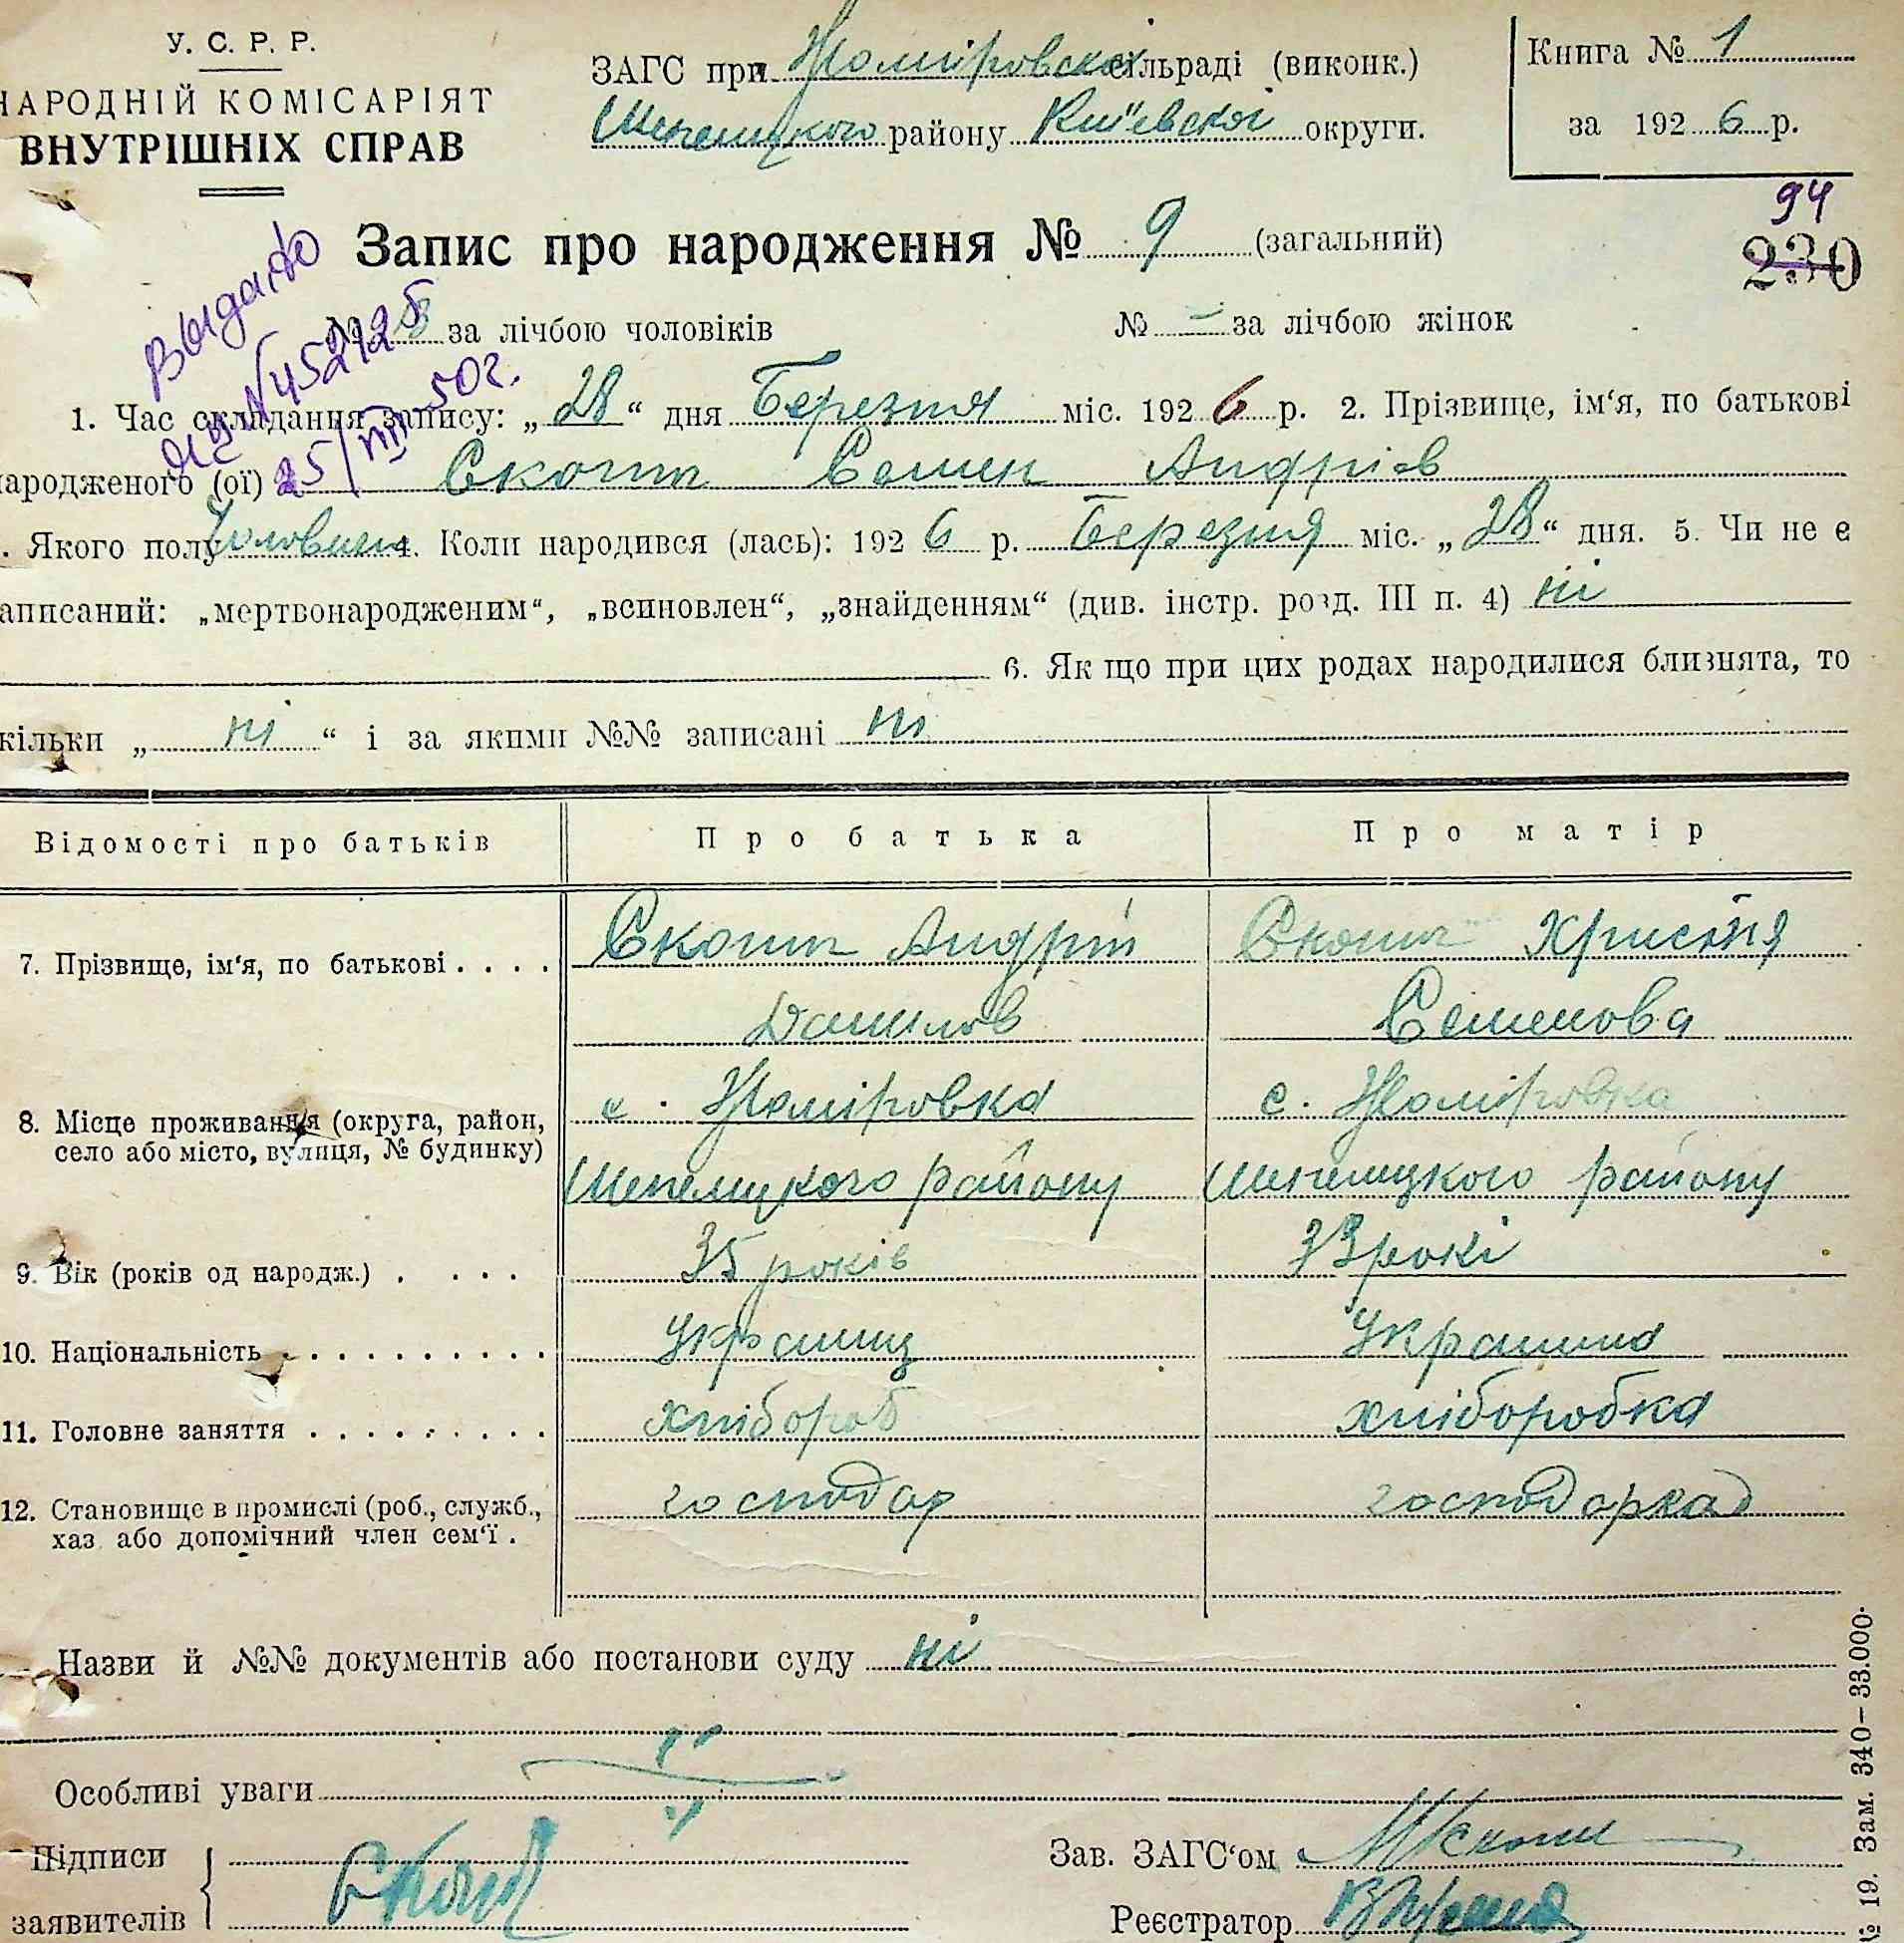 У. С. Р. Р.
НАРОДНІЙ КОМІСАРІЯТ
ВНУТРІШНІХ СПРАВ
ЗАГС при сільраді (виконк.)
Шепелицкого району Київской округи.
Книга № 1
за 1926 р.
94
230
Запис про народження № 9 (загальний)
Выдано
№ за лічбою чоловіків № – за лічбою жінок
25/VIII 50г.
1. Час складання запису: „28“ дня Березня міс. 1926 р. 2. Прізвище, ім‘я, по батькові
народженого (ої) Скопт Семен Андріев
. Якого полу 4. Коли народився (лась): 1926 р. Березня міс. „28“ дня. 5. Чи не є
аписаний: „мертвонародженим“, „всиновлен“, „знайденням“ (див. інстр. розд. III п. 4) ні
6. Як що при цих родах народилися близнята, то
кільки „ні“ і за якими №№ записані ні
Відомості про батьків Про батька Про матір
7. Прізвище, ім‘я, по батькові . . . . Скопт Андрій Скопт Христя
Данилов Семенова
8. Місце проживання (округа, район, село або місто, вулиця, № будинку) с. Жоміровка с. Жоміровка
Шепелицкого району Шепелицкого району
9. Вік (років од народж.) . . . . 35 років 33 рокі
10. Національність . . . . . . . . . . Украинц Украинка
11. Головне заняття . . . . . . . . . хлібороб хліборобка
12. Становище в промислі (роб., служб., хаз. або допомічний член сем‘ї . господар господарка
Назви й №№ документів або постанови суду ні
Особливі уваги
Підписи
заявителів
Зав. ЗАГС‘ом
Реєстратор
№ 19. Зам. 340–33.000.